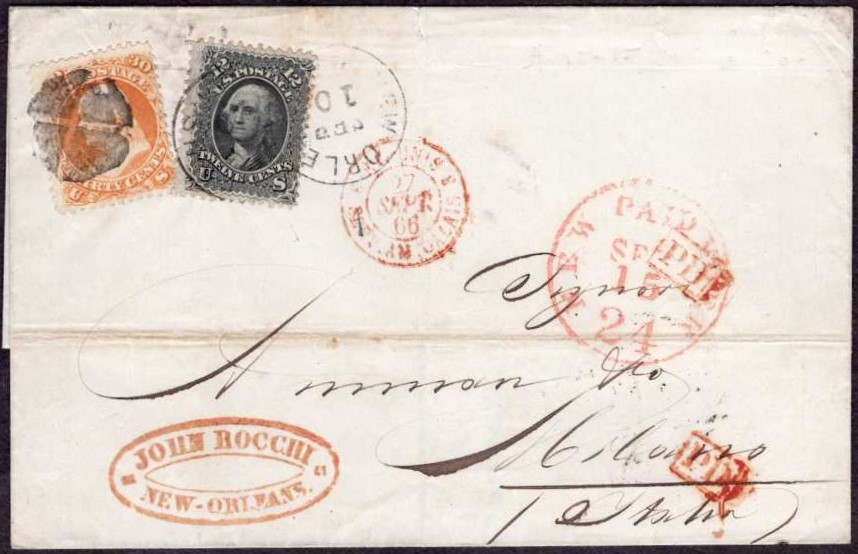 30
POSTAGE
THIRTY CENTS
U S
12 12
U.S. POSTAGE
TWELVE CENTS
U S
NEW ORLE
SEP
10
27
SEPT
66
NEW PAID YORK
SEP
15
24
PD
Signor
Milano
Italia
PD
JOHN ROCCHI
NEW-ORLEANS.